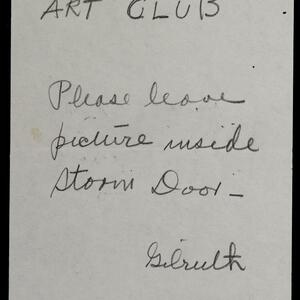 ART CLUB
Please leave
picture inside
Storm Door -
Gilruth